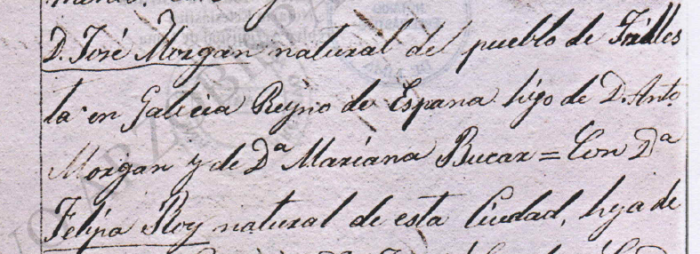 D. José Morgan natural del pueblo de
ta en Galicia Reyno de España hijo de D. Anto
Morgan y de Dª Mariana Bucar = Con Dª
Felipa Roy natural de esta Ciudad, hija de